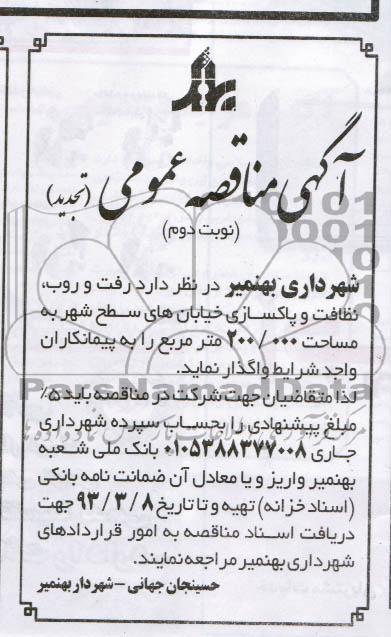 آگهی مناقصه عمومی (تجدید)
(نوبت دوم)
شهرداری بهنمیر در نظر دارد رفت و روب،
نظافت و پاکسازی خیابان های سطح شهر به
مساحت ۲۰۰/۰۰۰ متر مربع را به پیمانکاران
واجد شرایط واگذار نماید.
لذا متقاضیان جهت شرکت در مناقصه باید ۵٪
مبلغ پیشنهادی را بحساب سپرده شهرداری
جاری ۰۱۰۵۳۸۸۳۷۷۰۰۸ بانک ملی شعبه
بهنمیر واریز و یا معادل آن ضمانت نامه بانکی
(اسناد خزانه) تهیه و تا تاریخ ۹۳/۳/۸ جهت
دریافت اسناد مناقصه به امور قراردادهای
شهرداری بهنمیر مراجعه نمایند.
حسینجان جهانی - شهردار بهنمیر
ParsNamadData